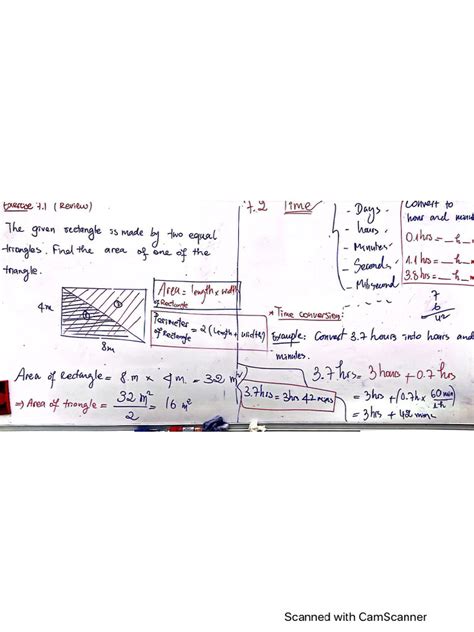 Exercise 7.1 (Review)
The given rectangle is made by two equal
triangles. Find the area of one of the
triangle.
4m
1
2
8m
Area = length x width
of Rectangle
Perimeter = 2(Length + width)
of Rectangle
Area of Rectangle = 8 m x 4 m = 32 m²
=> Area of triangle = 32 m² / 2 = 16 m²
7.2 Time
- Days
- hours
- Minutes
- Seconds
- Milisecond
Convert to
hour and
0.1hrs = _h_
1.1 hrs = _h_
3.8hrs = _h_
7
6
42
* Time conversion:
Example: Convert 3.7 hours into hours and
minutes.
3.7hrs = 3 hours + 0.7hrs
= 3hrs + (0.7h x 60 min / 1h)
= 3hrs + 42 mins
3.7hrs = 3hr 42 mins
Scanned with CamScanner